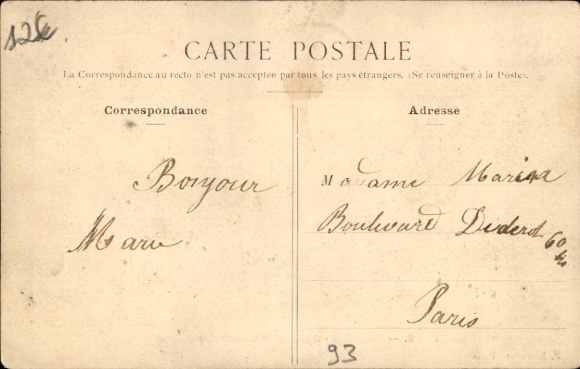 12€
CARTE POSTALE
La Correspondance au recto n'est pas acceptée par tous les pays étrangers. (Se renseigner à la Poste).
Correspondance
Adresse
Bonjour
Marie
Madame
Boulevard Diderot 60
Paris
93